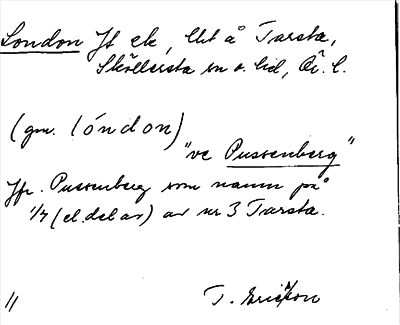 London Jf ek, Ut å Tarsta,
Sköllersta sn o. hd, Ör. l.
(gm. lóndon)
"ve Pussenberg"
Jfr. Pussenberg som namn på
1/7 (el. del av) av nr 3 Tarsta.
11
T. Ericsson